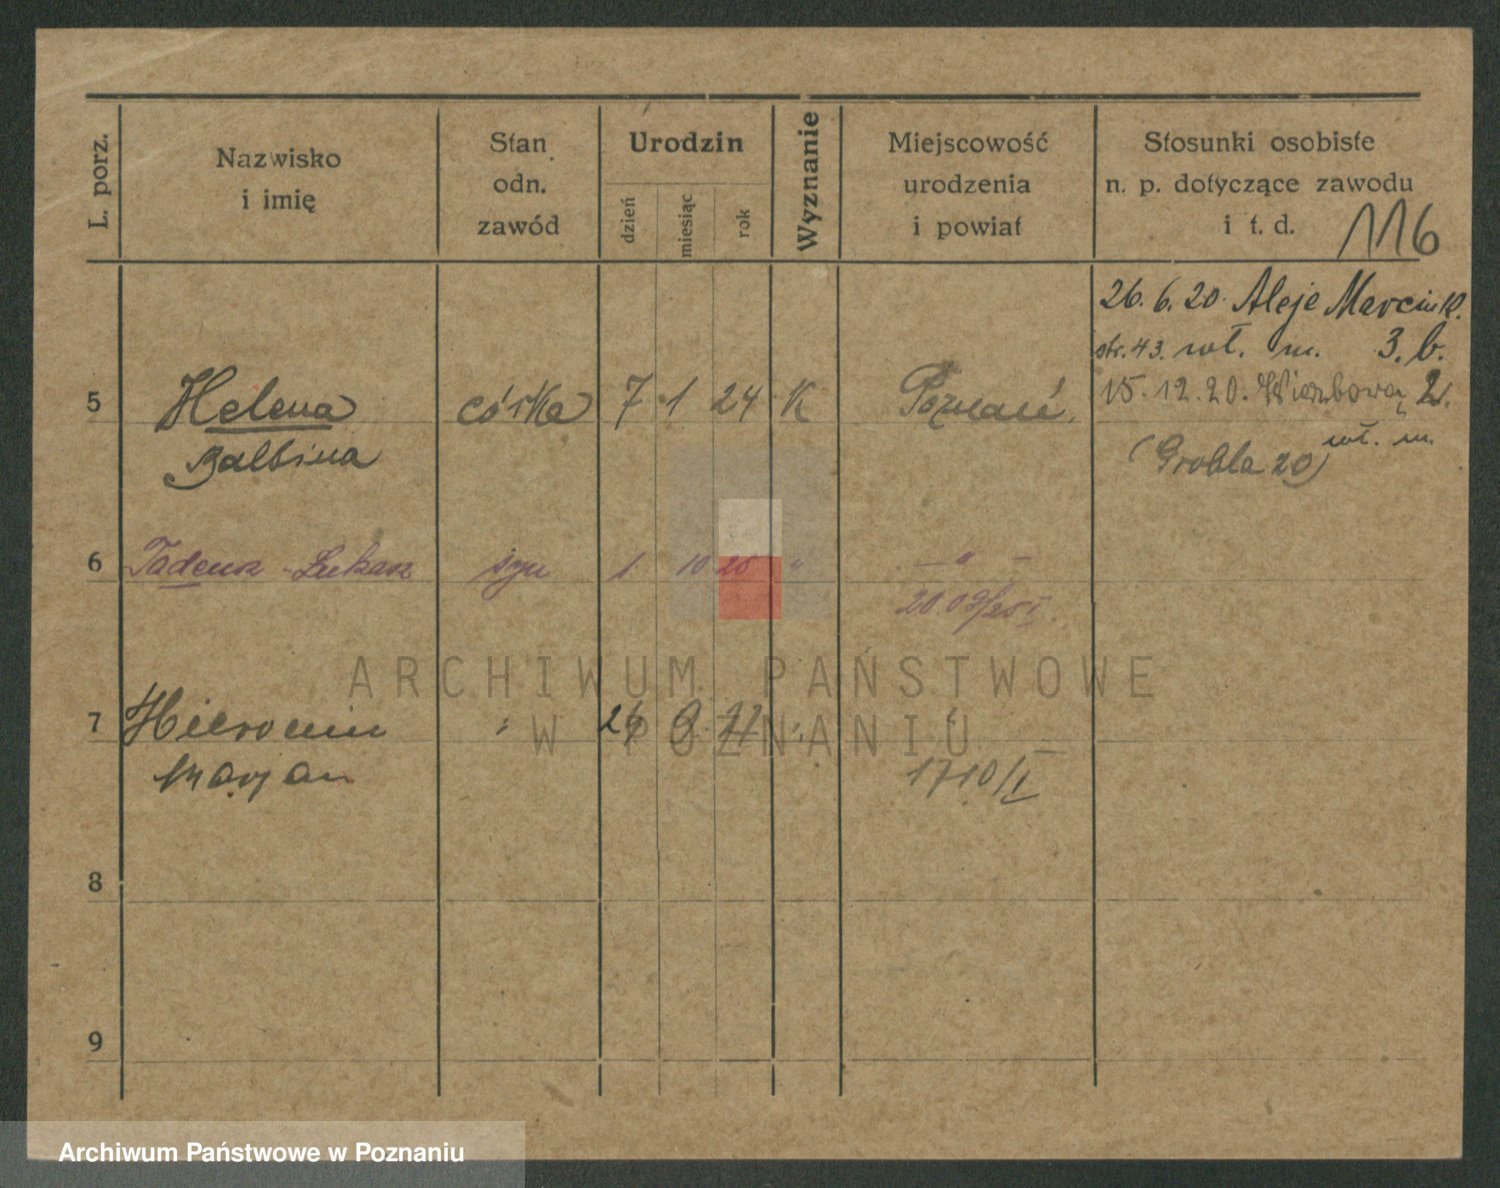 L. porz.
Nazwisko
i imię
Stan
odn.
zawód
Urodzin
dzień
miesiąc
rok
Wyznanie
Miejscowość
urodzenia
i powiat
Stosunki osobiste
n. p. dotyczące zawodu
i t. d.
116
26. 6. 20. Aleje Marcink.
str. 43. wł. m. 3. b.
15. 12. 20. Wierzbową 2.
wł. m.
(Grobla 20)
5 Helena córka 7 1 24 K Poznań.
Balbina
6 Tadeusz Łukasz syn 1 10 25 " — " —
7 Hieronim " 9 "
Maryan
1710/I
8
9
ARCHIWUM PAŃSTWOWE
W POZNANIU
Archiwum Państwowe w Poznaniu